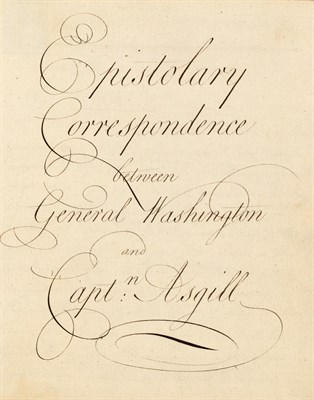 Epistolary
Correspondence
between
General Washington
and
Capt:n Asgill